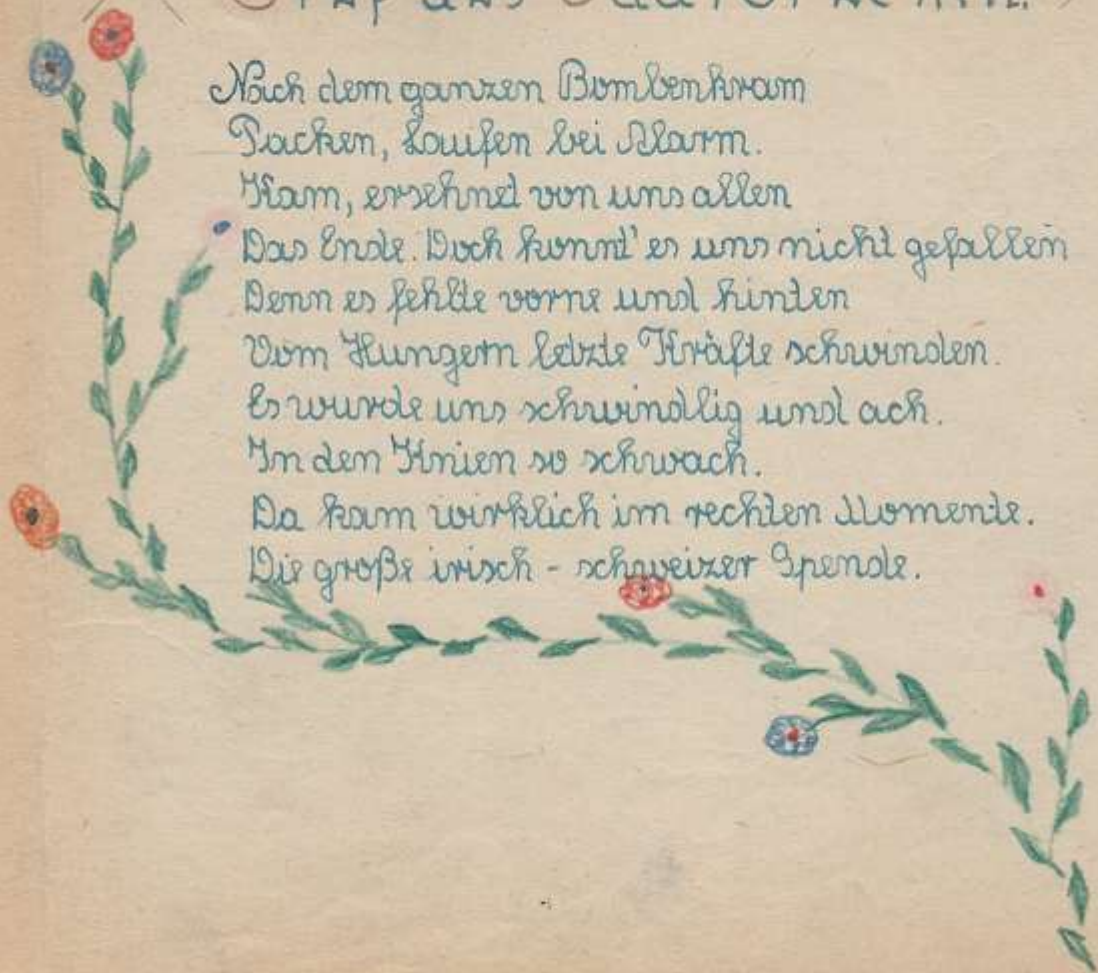 Nach dem ganzen Bombenkram
Packen, Laufen bei Alarm.
Kam, ersehnt von uns allen
Das Ende. Doch konnt' es uns nicht gefallen
Denn es fehlte vorne und hinten
Vom Hungern letzte Kräfte schwinden.
Es wurde uns schwindlig und ach.
In den Knien so schwach.
Da kam wirklich im rechten Momente.
Die große irisch - schweizer Spende.